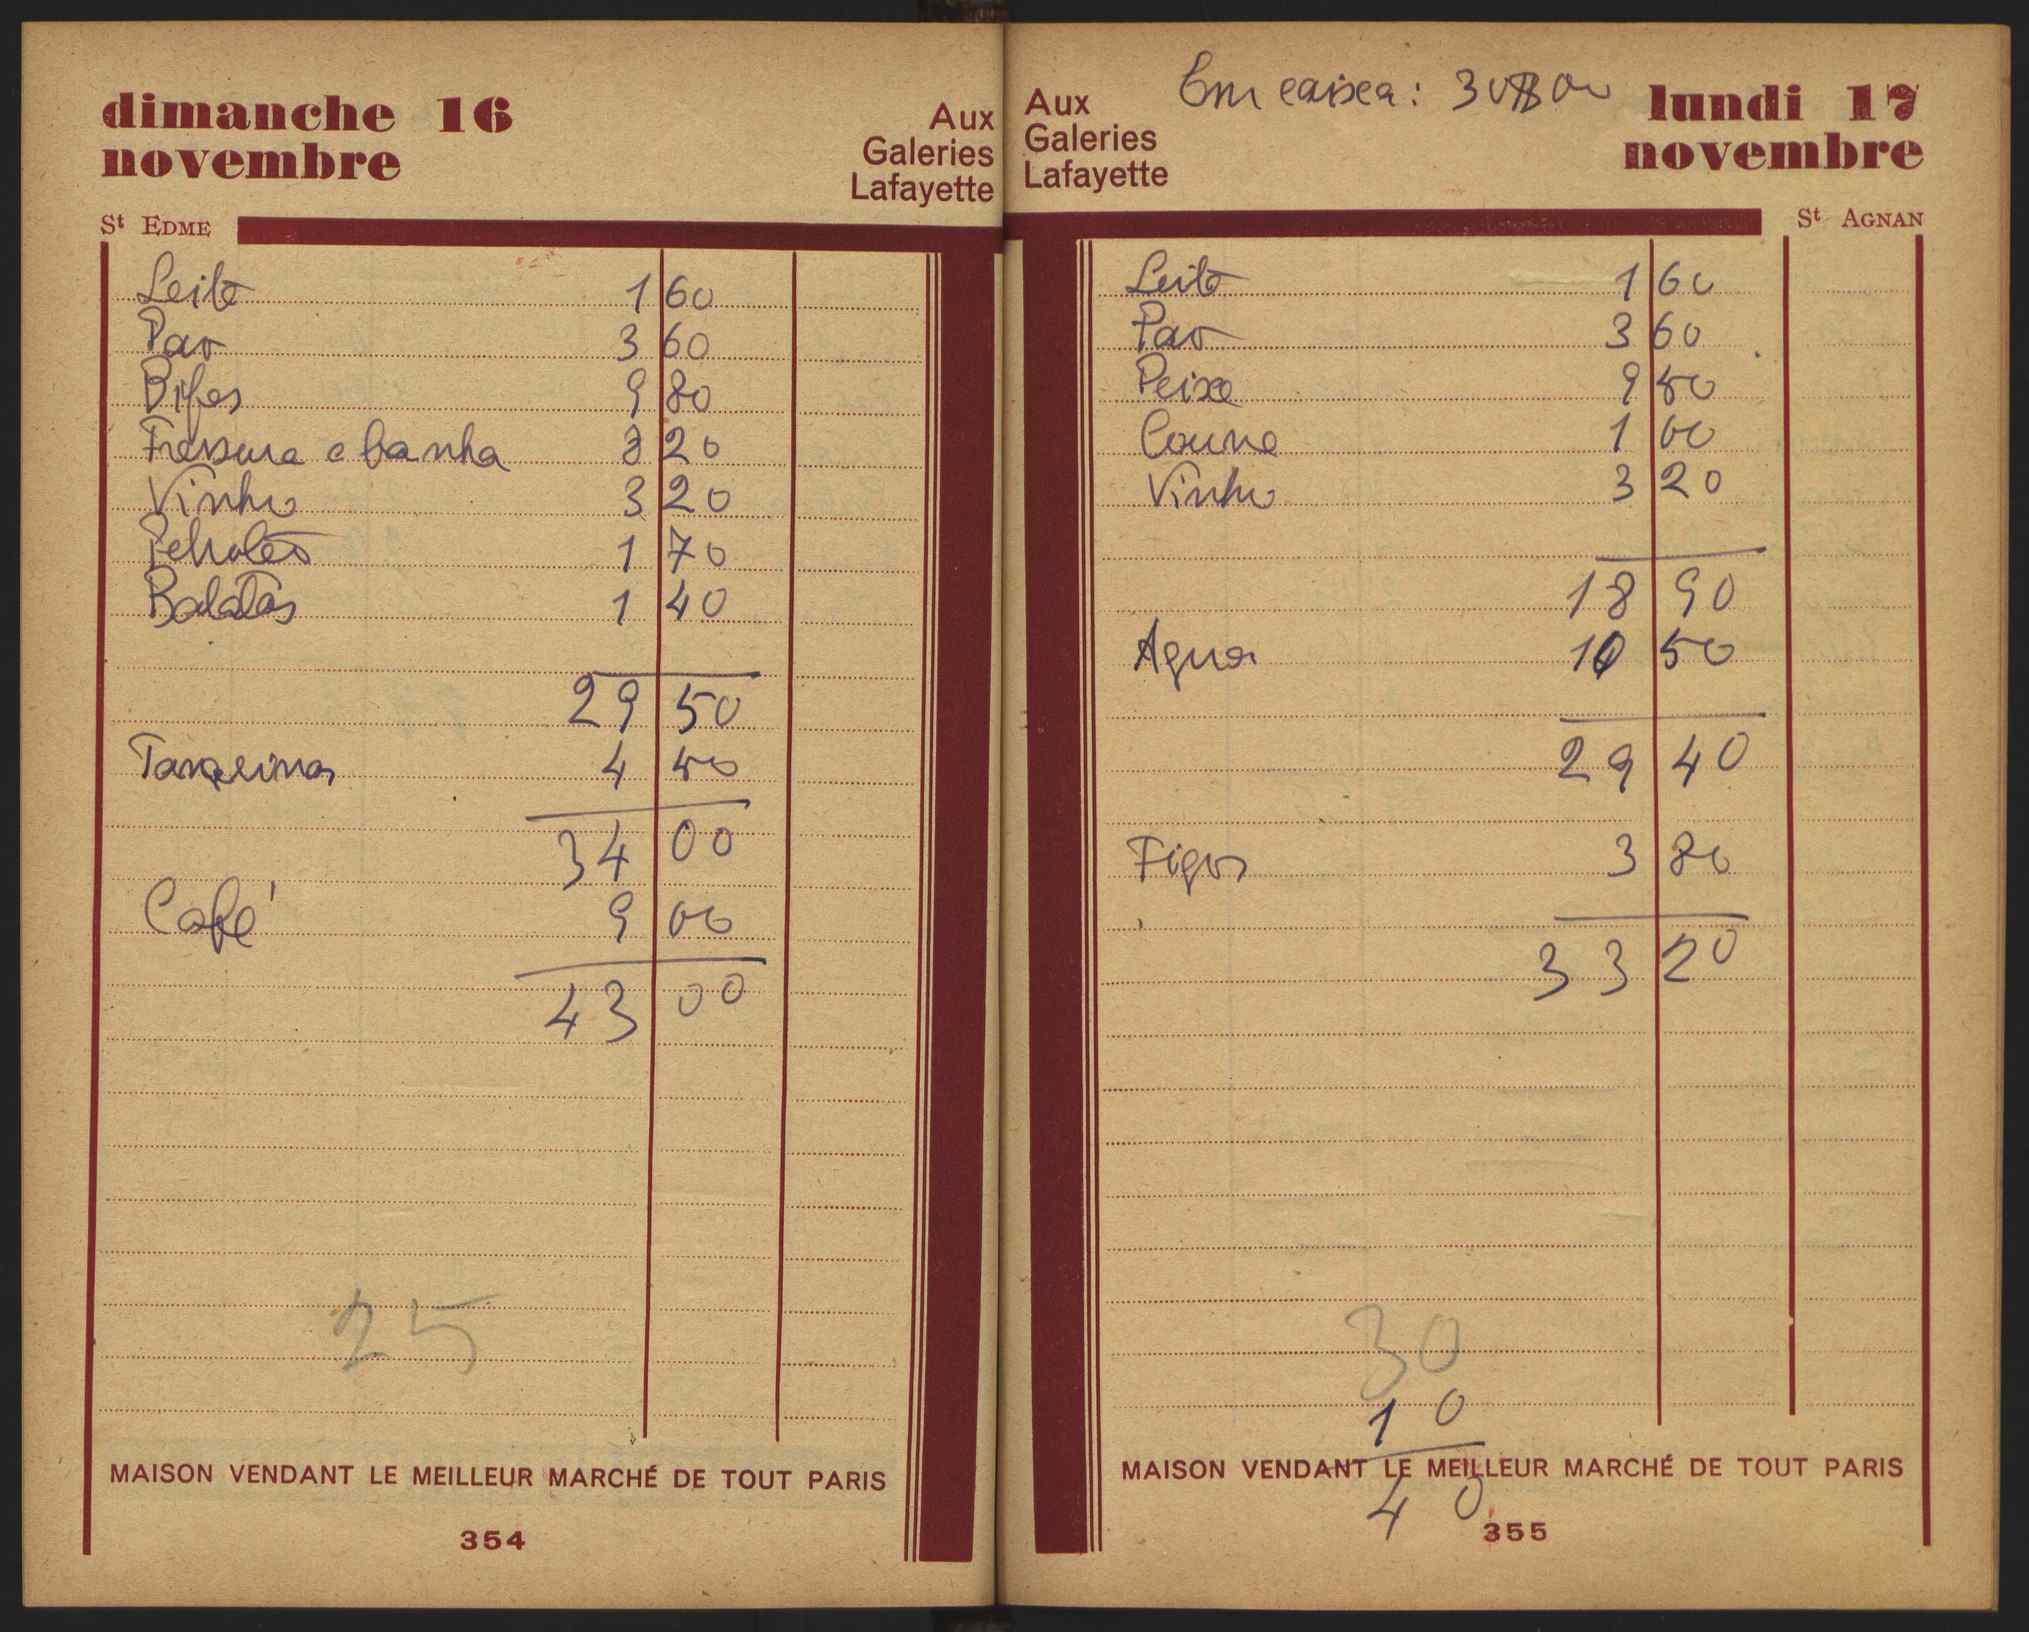 dimanche 16
novembre
Aux
Galeries
Lafayette
St EDME
Leite 1 60
Pao 3 60
Bifes 9 80
Fressura e banha 8 20
Vinho 3 20
Petroleo 1 70
Batatas 1 40
29 50
Tangerinas 4 50
34 00
Café 9 00
43 00
25
MAISON VENDANT LE MEILLEUR MARCHÉ DE TOUT PARIS
354
Aux
Galeries
Lafayette
Em caixa: 30$00
lundi 17
novembre
St AGNAN
Leite 1 60
Pao 3 60
Peixe 9 50
Couve 1 00
Vinho 3 20
18 90
Agua 10 50
29 40
Figos 3 80
33 20
30
10
40
MAISON VENDANT LE MEILLEUR MARCHÉ DE TOUT PARIS
355